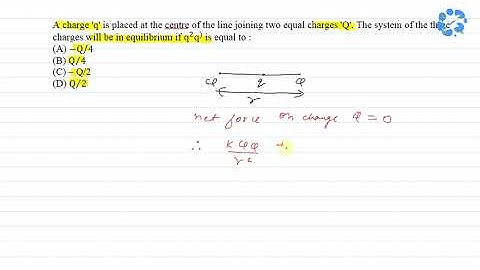 A charge 'q' is placed at the centre of the line joining two equal charges 'Q'. The system of the three
charges will be in equilibrium if q²q⁾ is equal to :
(A) –Q/4
(B) Q/4
(C) – Q/2
(D) Q/2
Q q Q
r
net force on charge Q = 0
∴ KQQ/r² +